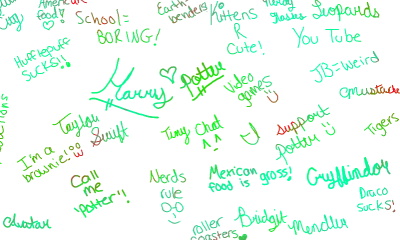 American
food!
School =
BORING!
Earth
benders
Kittens
R
Cute!
Leopards
You Tube
Hufflepuff
SUCKS!!
Harry
Potter
Video
games
JB=Weird
mustache
Taylor
Swift
Tiny Chat
^ ^
support
potter
Tigers
I'm a
brownie!
Call
me
'potter'!!
Nerds
rule
Mexican
food is gross!
Gryffindor
Draco
sucks!
Avatar
roller
coasters
Bridgit
Mendler